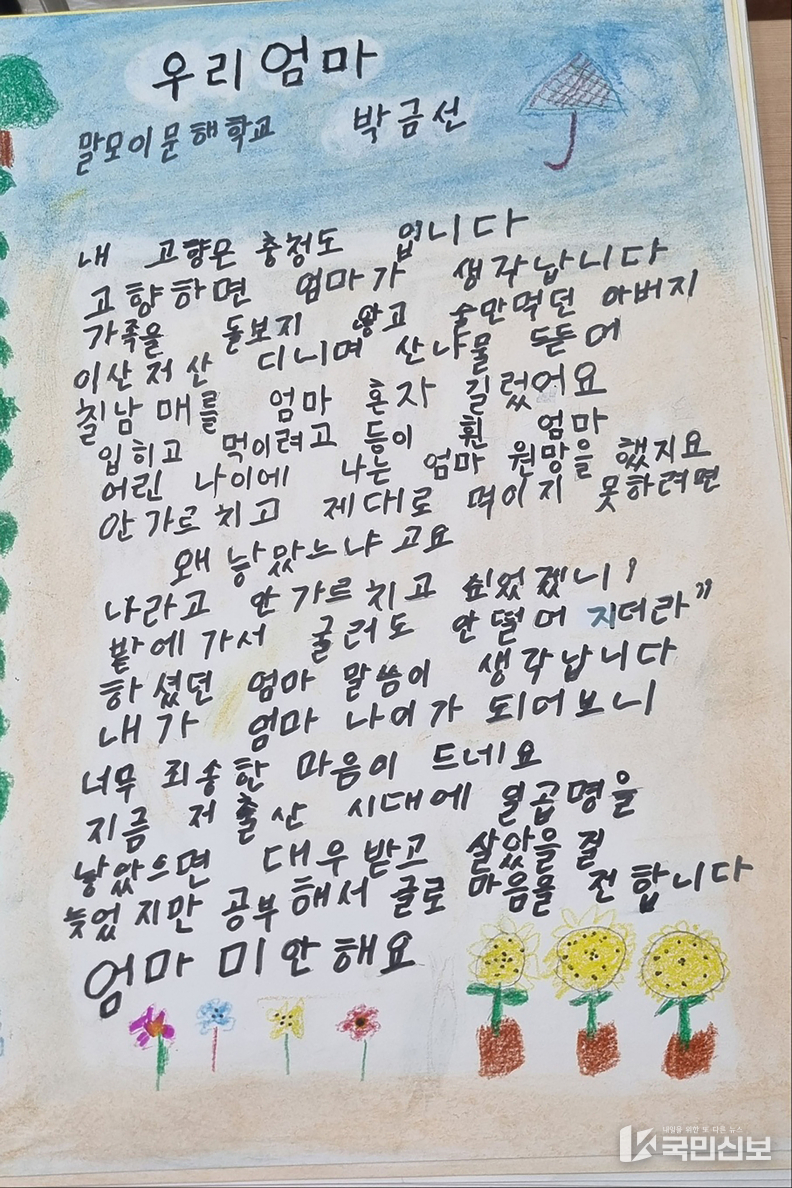 우리엄마
말모이문해학교 박금선
내 고향은 충청도 입니다
고향하면 엄마가 생각납니다
가족을 돌보지 않고 술만먹던 아버지
이산저산 디니며 산나물 뜯어
칠남매를 엄마 혼자 길렀어요
입히고 먹이려고 등이 휜 엄마
어린 나이에 나는 엄마 원망을 했지요
안가르치고 제대로 먹이지 못하려면
왜 낳았느냐고요
나라고 안가르치고 싶었겠니!
밭에가서 굴러도 안떨어지더라"
하셨던 엄마 말씀이 생각납니다
내가 엄마 나이가 되어보니
너무 죄송한 마음이 드네요
지금 저출산 시대에 일곱명을
낳았으면 대우받고 살았을걸
늦었지만 공부해서 글로 마음을 전합니다
엄마 미안해요
내일을 위한 또 다른 뉴스
국민신보